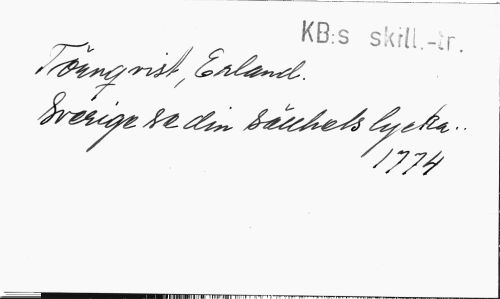 KB:s skill.-tr.
Törnqvist, Erland.
Sverige se din sällhets lycka..
1774